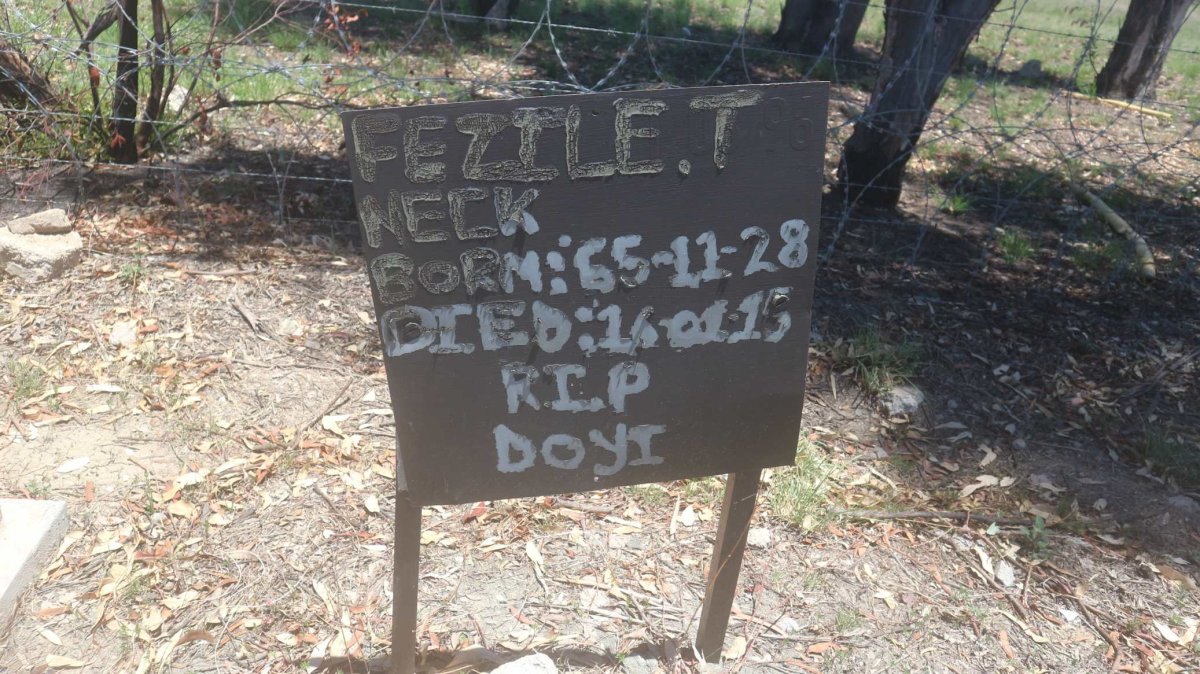 FEZILE.T
NECK
BORN:65-11-28
DIED:16-01-15
RIP
DOYI